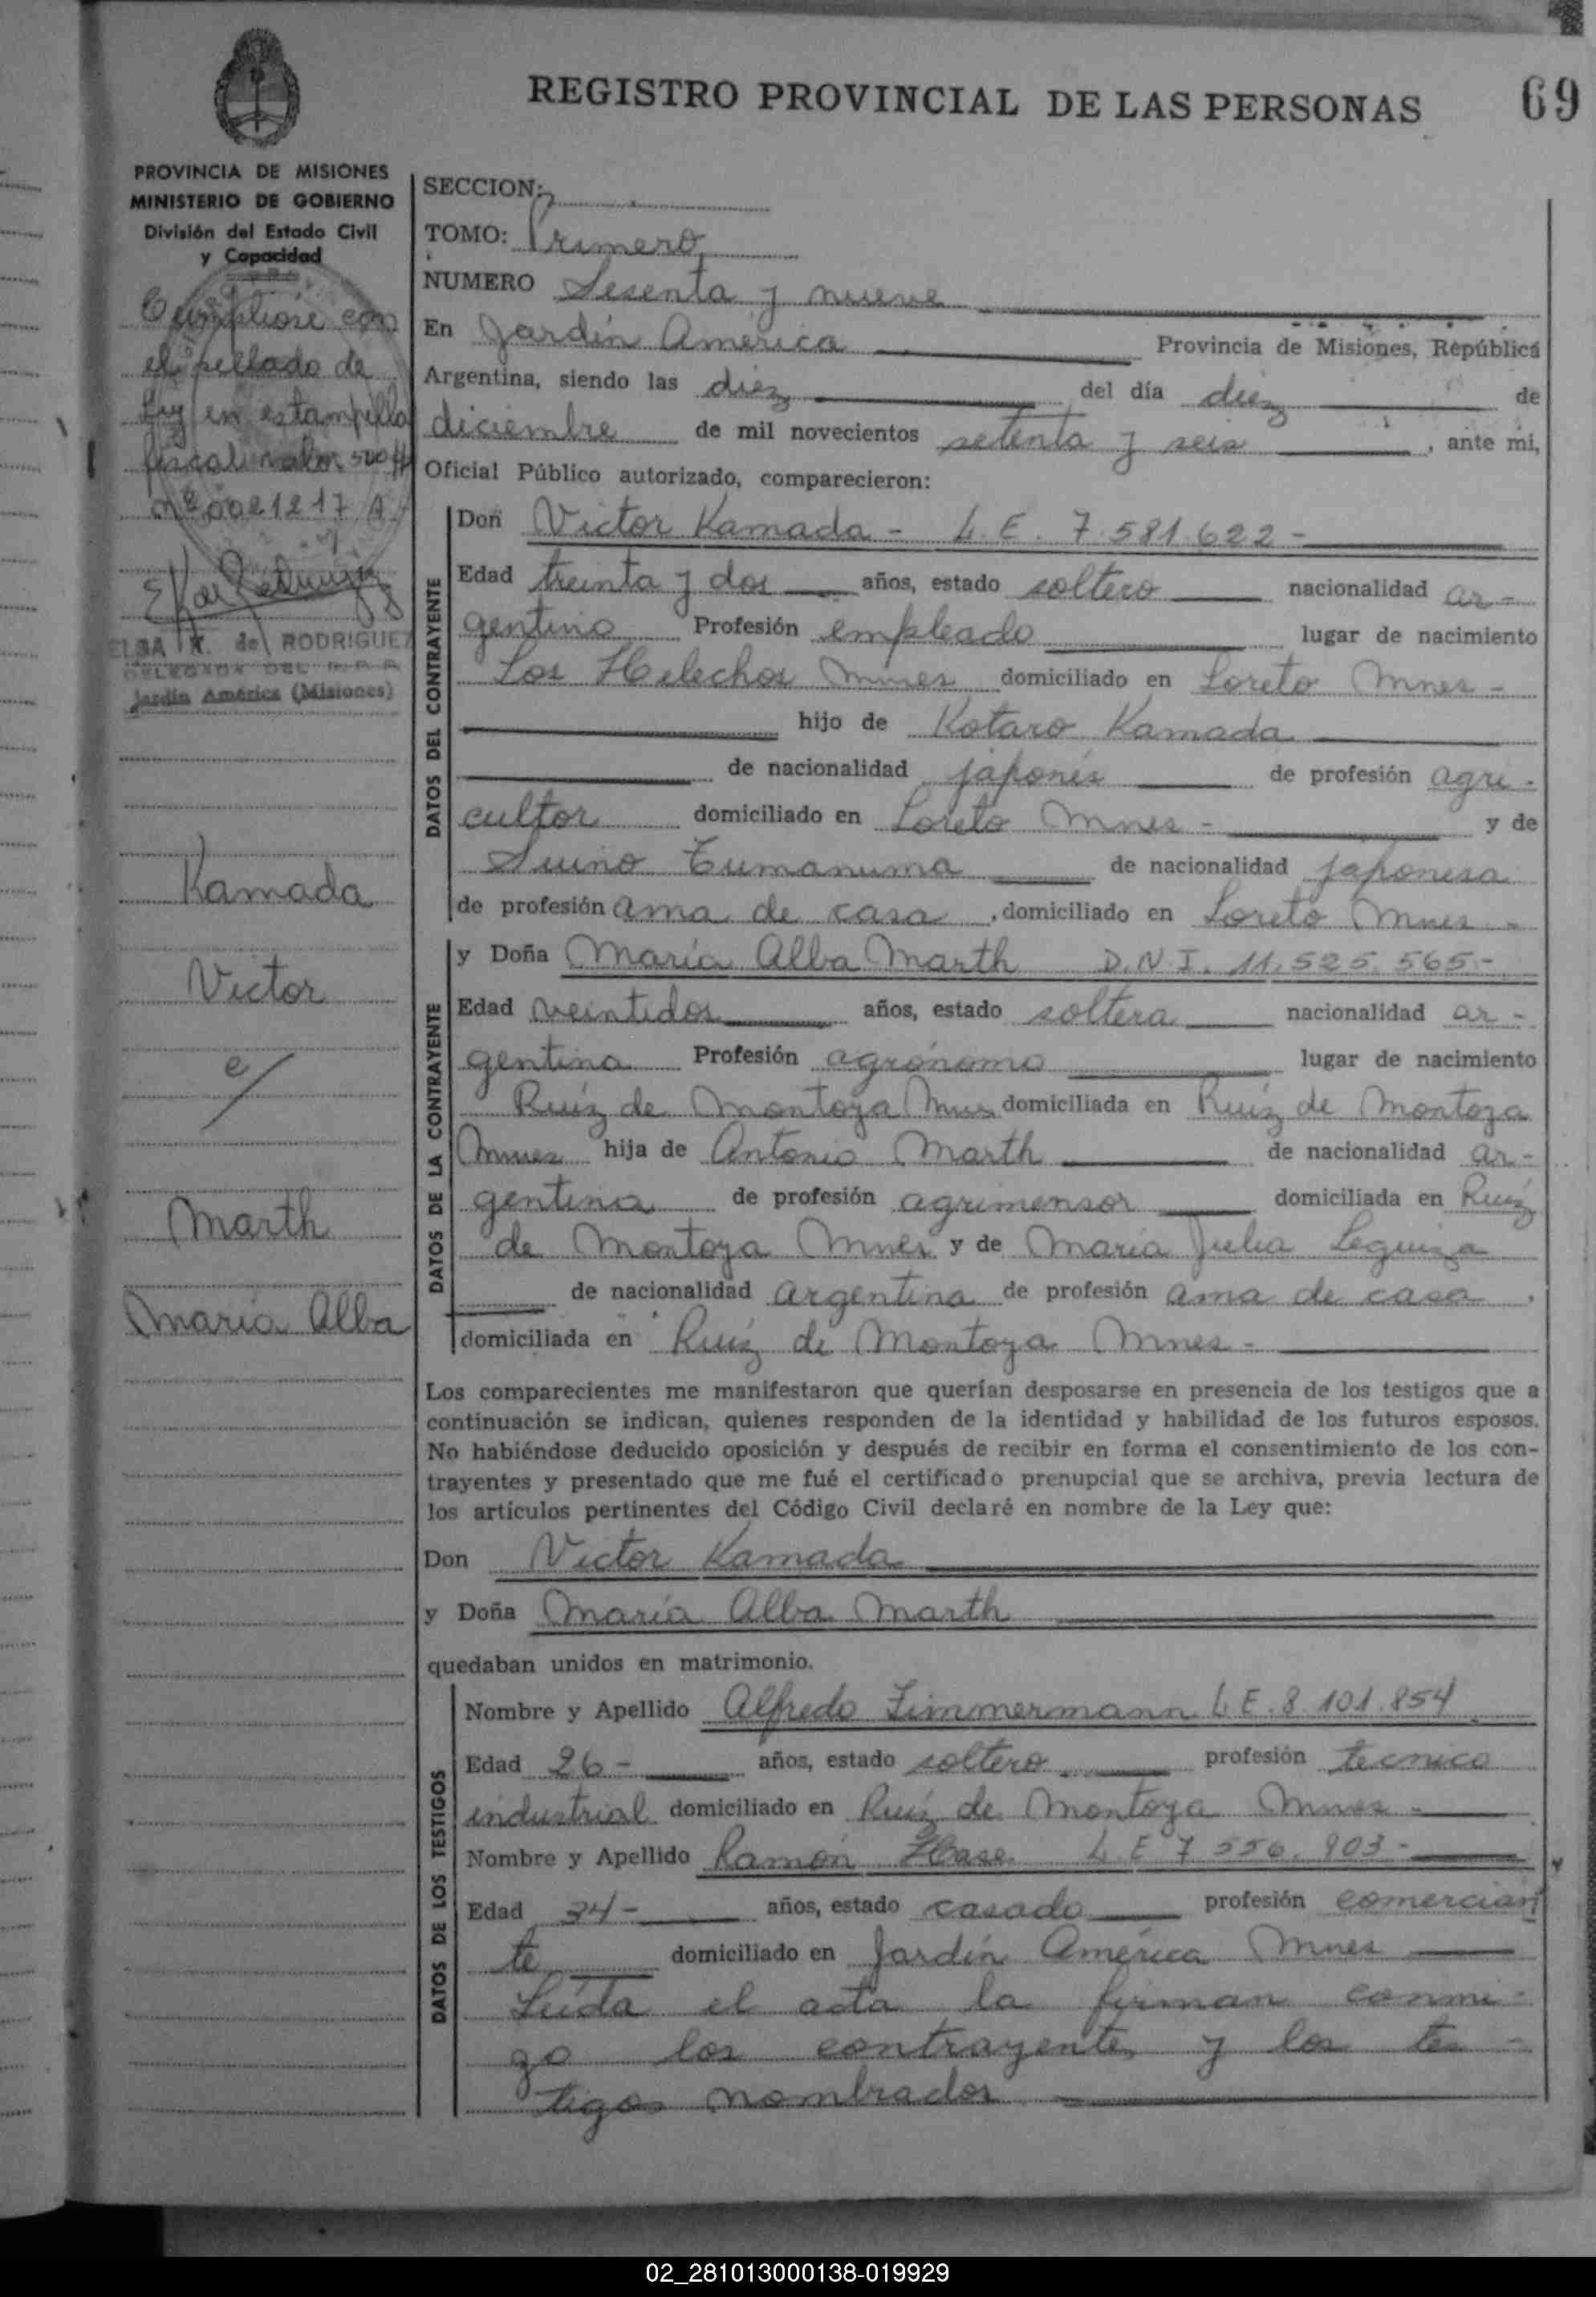 REGISTRO PROVINCIAL DE LAS PERSONAS
69
PROVINCIA DE MISIONES
MINISTERIO DE GOBIERNO
División del Estado Civil
y Capacidad
Cumplióse con
el sellado de
Ley en estampilla
fiscal valor 500
nº 0021217 A
ELSA K. de RODRIGUEZ
DELEGADA DEL R.P.P.
Jardín América (Misiones)
Kamada
Victor
e/
Marth
María Alba
SECCION:
TOMO: Primero
NUMERO Sesenta y nueve
En Jardín América Provincia de Misiones, República
Argentina, siendo las diez del día diez de
diciembre de mil novecientos setenta y seis, ante mi,
Oficial Público autorizado, comparecieron:
DATOS DEL CONTRAYENTE
Don Victor Kamada - L. E. 7.581.622 -
Edad treinta y dos años, estado soltero nacionalidad ar-
gentino Profesión empleado lugar de nacimiento
Los Helechos Mnes domiciliado en Loreto Mnes -
hijo de Kotaro Kamada
de nacionalidad japonés de profesión agri-
cultor domiciliado en Loreto Mnes - y de
Suino Tumanuma de nacionalidad japonesa
de profesión ama de casa, domiciliado en Loreto Mnes -
DATOS DE LA CONTRAYENTE
y Doña María Alba Marth D.N.I. 11.525.565-
Edad veintidos años, estado soltera nacionalidad ar-
gentina Profesión agrónomo lugar de nacimiento
Ruíz de Montoya Mnes domiciliada en Ruíz de Montoya
Mnes hija de Antonio Marth de nacionalidad ar-
gentina de profesión agrimensor domiciliada en Ruíz
de Montoya Mnes y de María Julia Leguiza
de nacionalidad argentina de profesión ama de casa,
domiciliada en Ruíz de Montoya Mnes -
Los comparecientes me manifestaron que querían desposarse en presencia de los testigos que a
continuación se indican, quienes responden de la identidad y habilidad de los futuros esposos.
No habiéndose deducido oposición y después de recibir en forma el consentimiento de los con-
trayentes y presentado que me fué el certificado prenupcial que se archiva, previa lectura de
los artículos pertinentes del Código Civil declaré en nombre de la Ley que:
Don Victor Kamada
y Doña María Alba Marth
quedaban unidos en matrimonio.
DATOS DE LOS TESTIGOS
Nombre y Apellido Alfredo Zimmermann L.E. 8.101.854
Edad 26- años, estado soltero profesión tecnico
industrial domiciliado en Ruíz de Montoya Mnes -
Nombre y Apellido Ramón Hase L.E 7.556.903-
Edad 34- años, estado casado profesión comercian
te domiciliado en Jardín América Mnes
Leída el acta la firman conmi-
go los contrayentes y los tes-
tigos nombrados
02_281013000138-019929